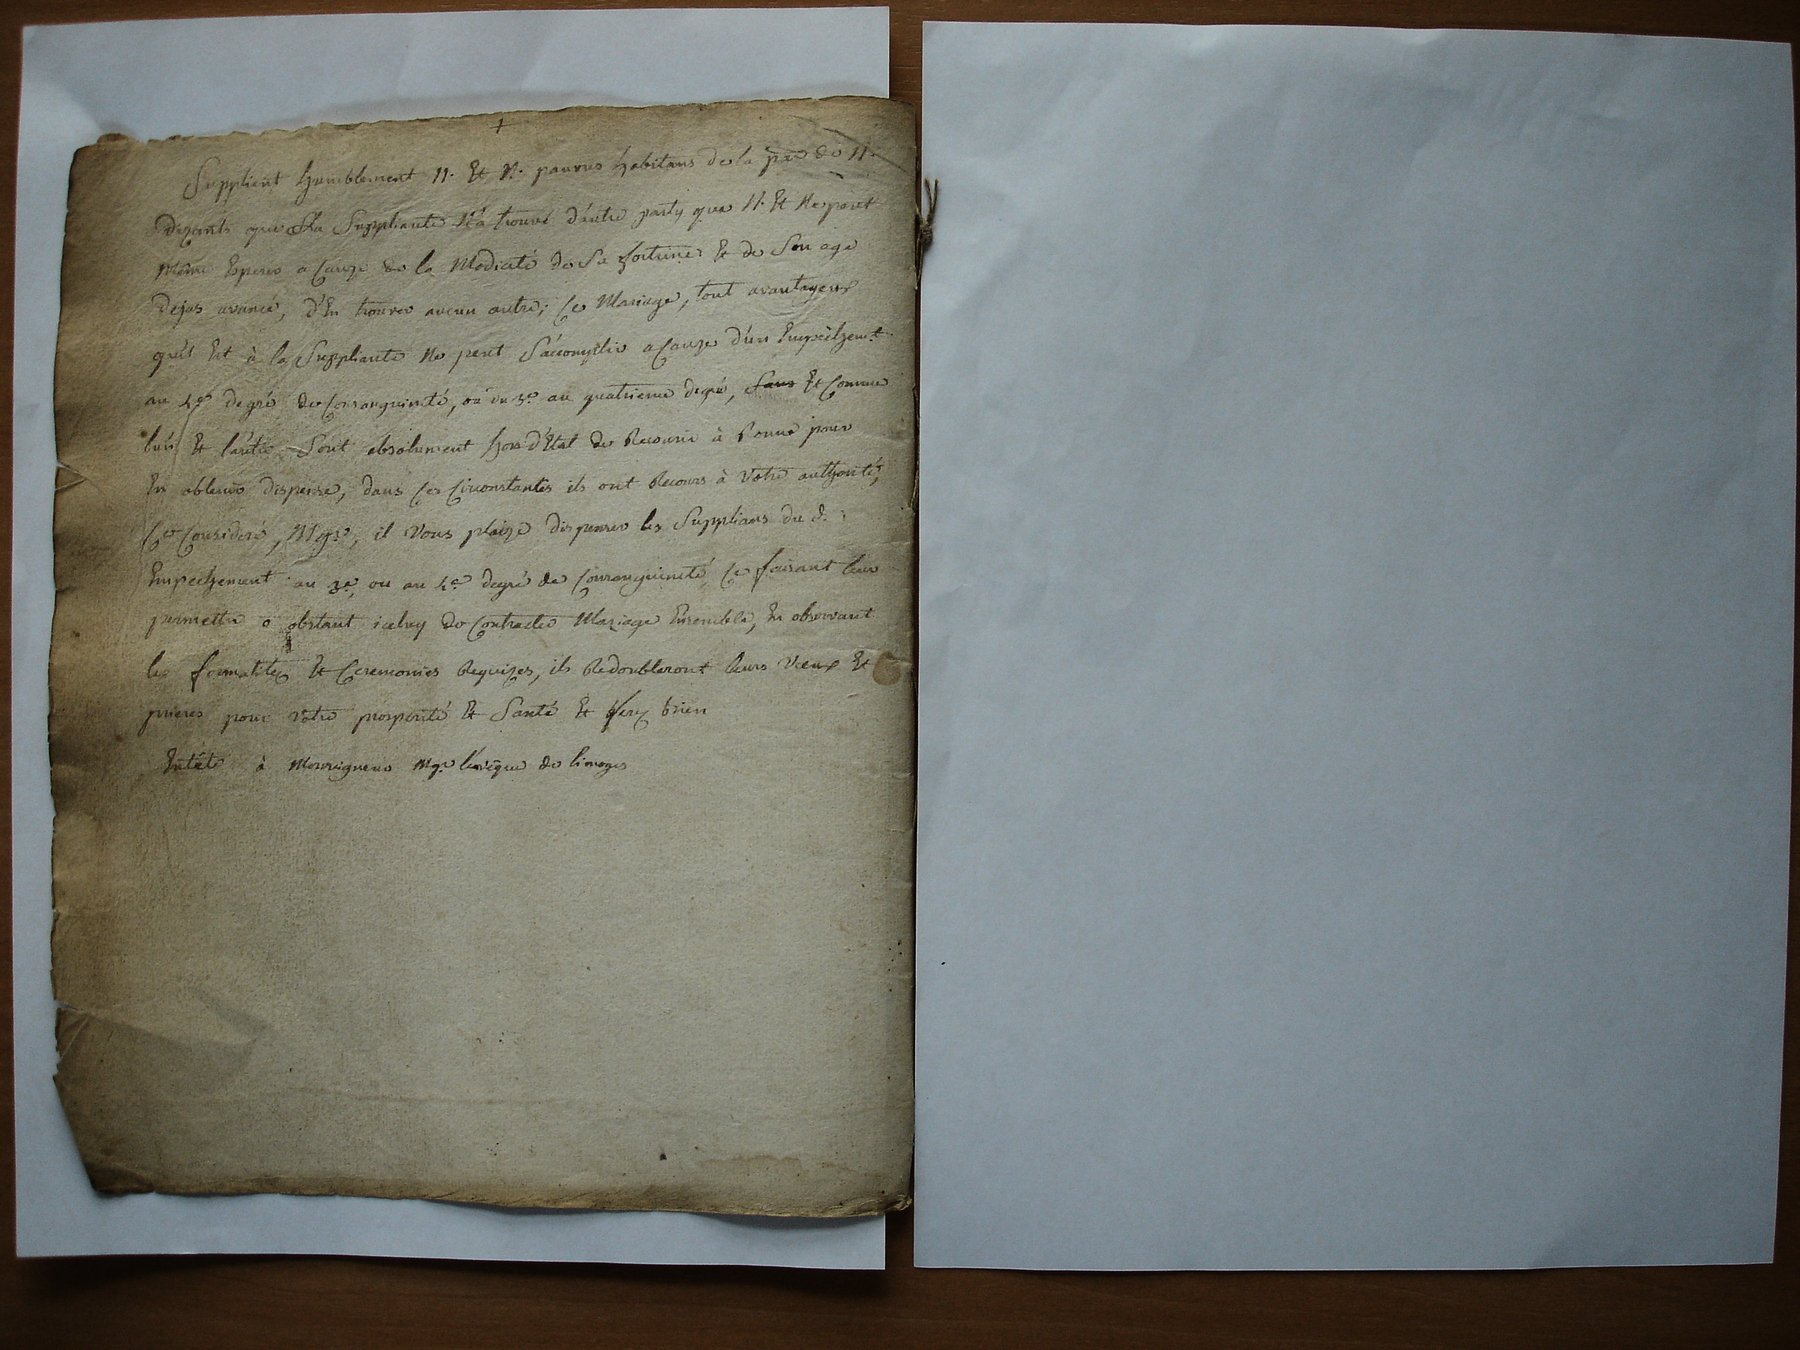 +
Supplient humblement N. Et N. pauvres habitans de la passe de N.
Dizants que la Suppliante N'a trouvé d'autre party que N. Et Ne peut
Même Esperer a Cauze de la Modicité de Sa fortune; Et de Son age
Dejas avancé, d'En trouver aucun autre; Ce Mariage, tout avantageux
qu'il Est à la Suppliante Ne peut S'accomplir a Cauze d'un Empêchemt.
au 4e degré de Consanguinité, ou du 3e au quatrieme degré, Et Comme
l'un Et l'autre Sont absolument hors d'Etat de Recourir à Rome pour
En obtenir dispense, dans Ces Circonstantes ils ont Recours à Votre authorité,
Ce Consideré, Mgr, il Vous plaize dispenser les Supplians du d.
Empechement au 3e, ou au 4e degré de Consanguinité, Ce faisant leur
permettre o obstant icelluy de Contracter Mariage Ensemble, En observant
les formalités Et Ceremonies Requizes, ils Redoubleront leurs Vœux Et
prieres pour Votre prosperité Et Santé Et ferez bien
Entête à Monseigneur Mgr l'evêque de limoges